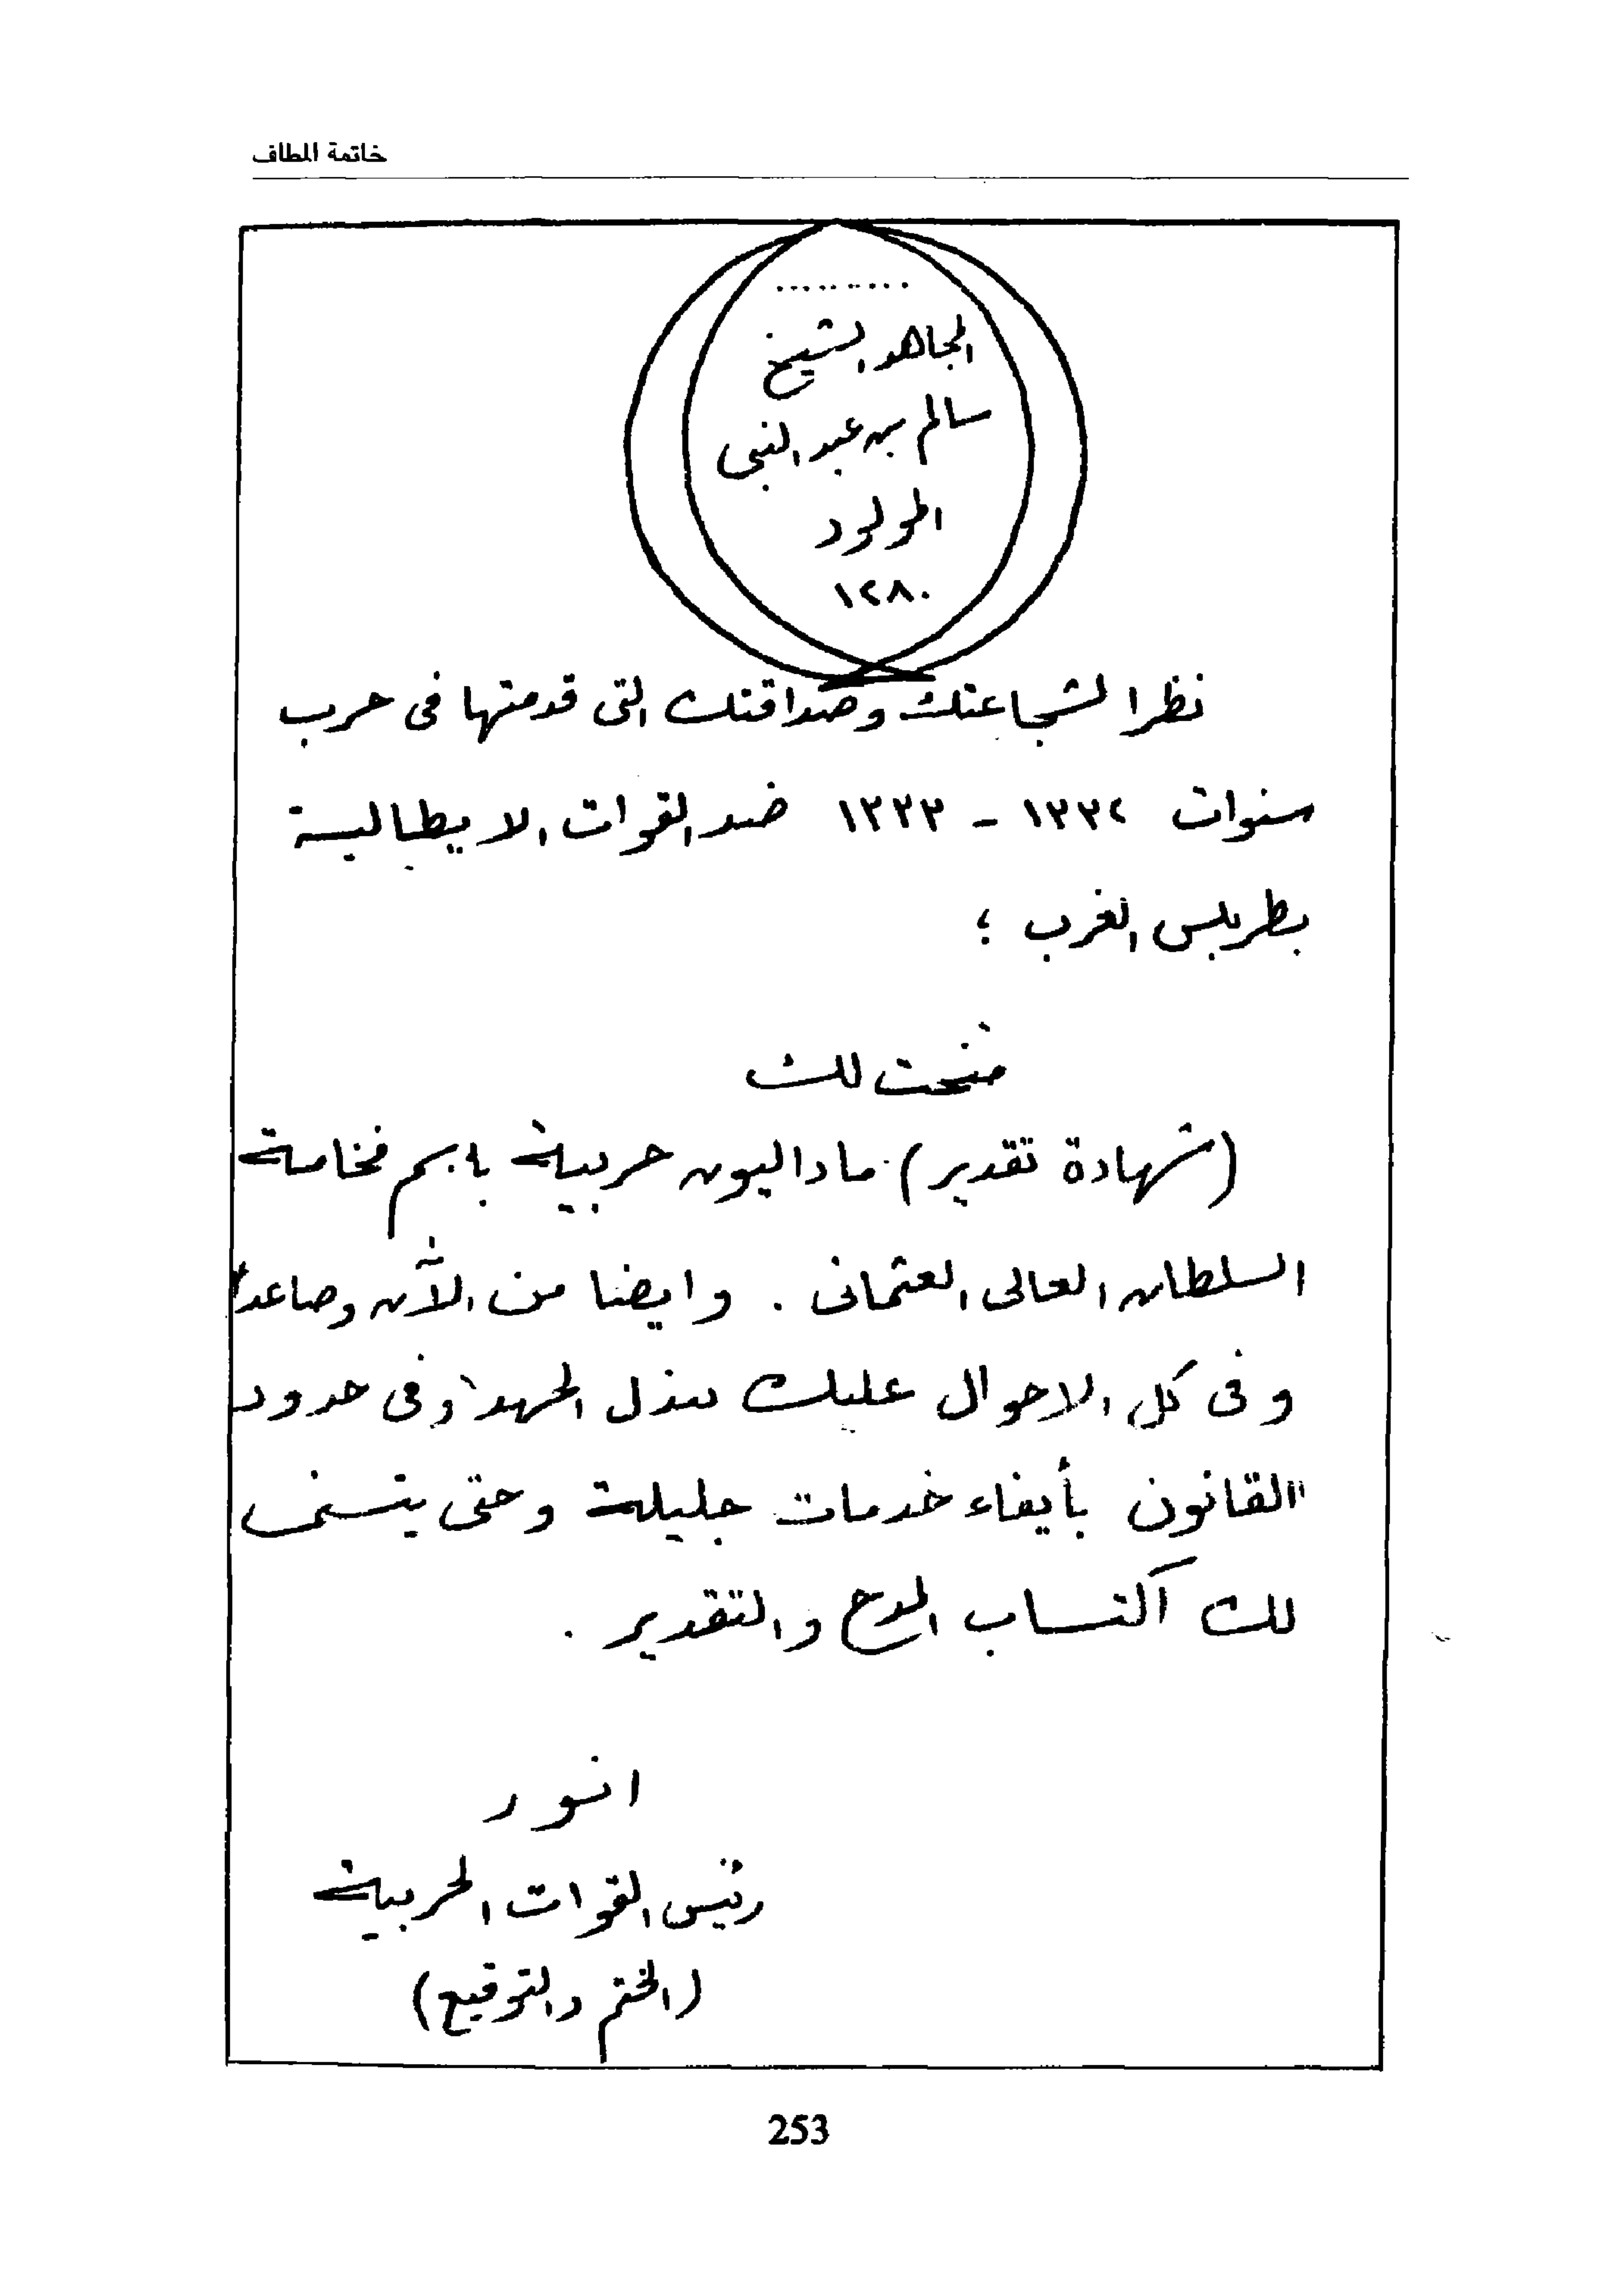 خاتمة المطاف
..........
المجاهد الشيخ
سالم بن عبد النبى
المولود
١٢٨٠
نظرا لشجاعتك وصداقتك التى قدمتها فى حرب
سنوات ١٣٣٢ - ١٣٣٣ ضد القوات الايطالية
بطربلس الغرب ؛
منحت لك
(شهادة تقدير) ماداليون حربية باسم فخامة
السلطان العالى العثمانى . وايضا من الآن وصاعدا
وفى كل الاحوال عليك ببذل الجهد وفى حدود
القانون بأيفاء خدمات جليلة وحتى يتسنى
لك اكتساب المدح والتقدير .
انور
رئيس القوات الحربية
(الختم والتوقيع)
253